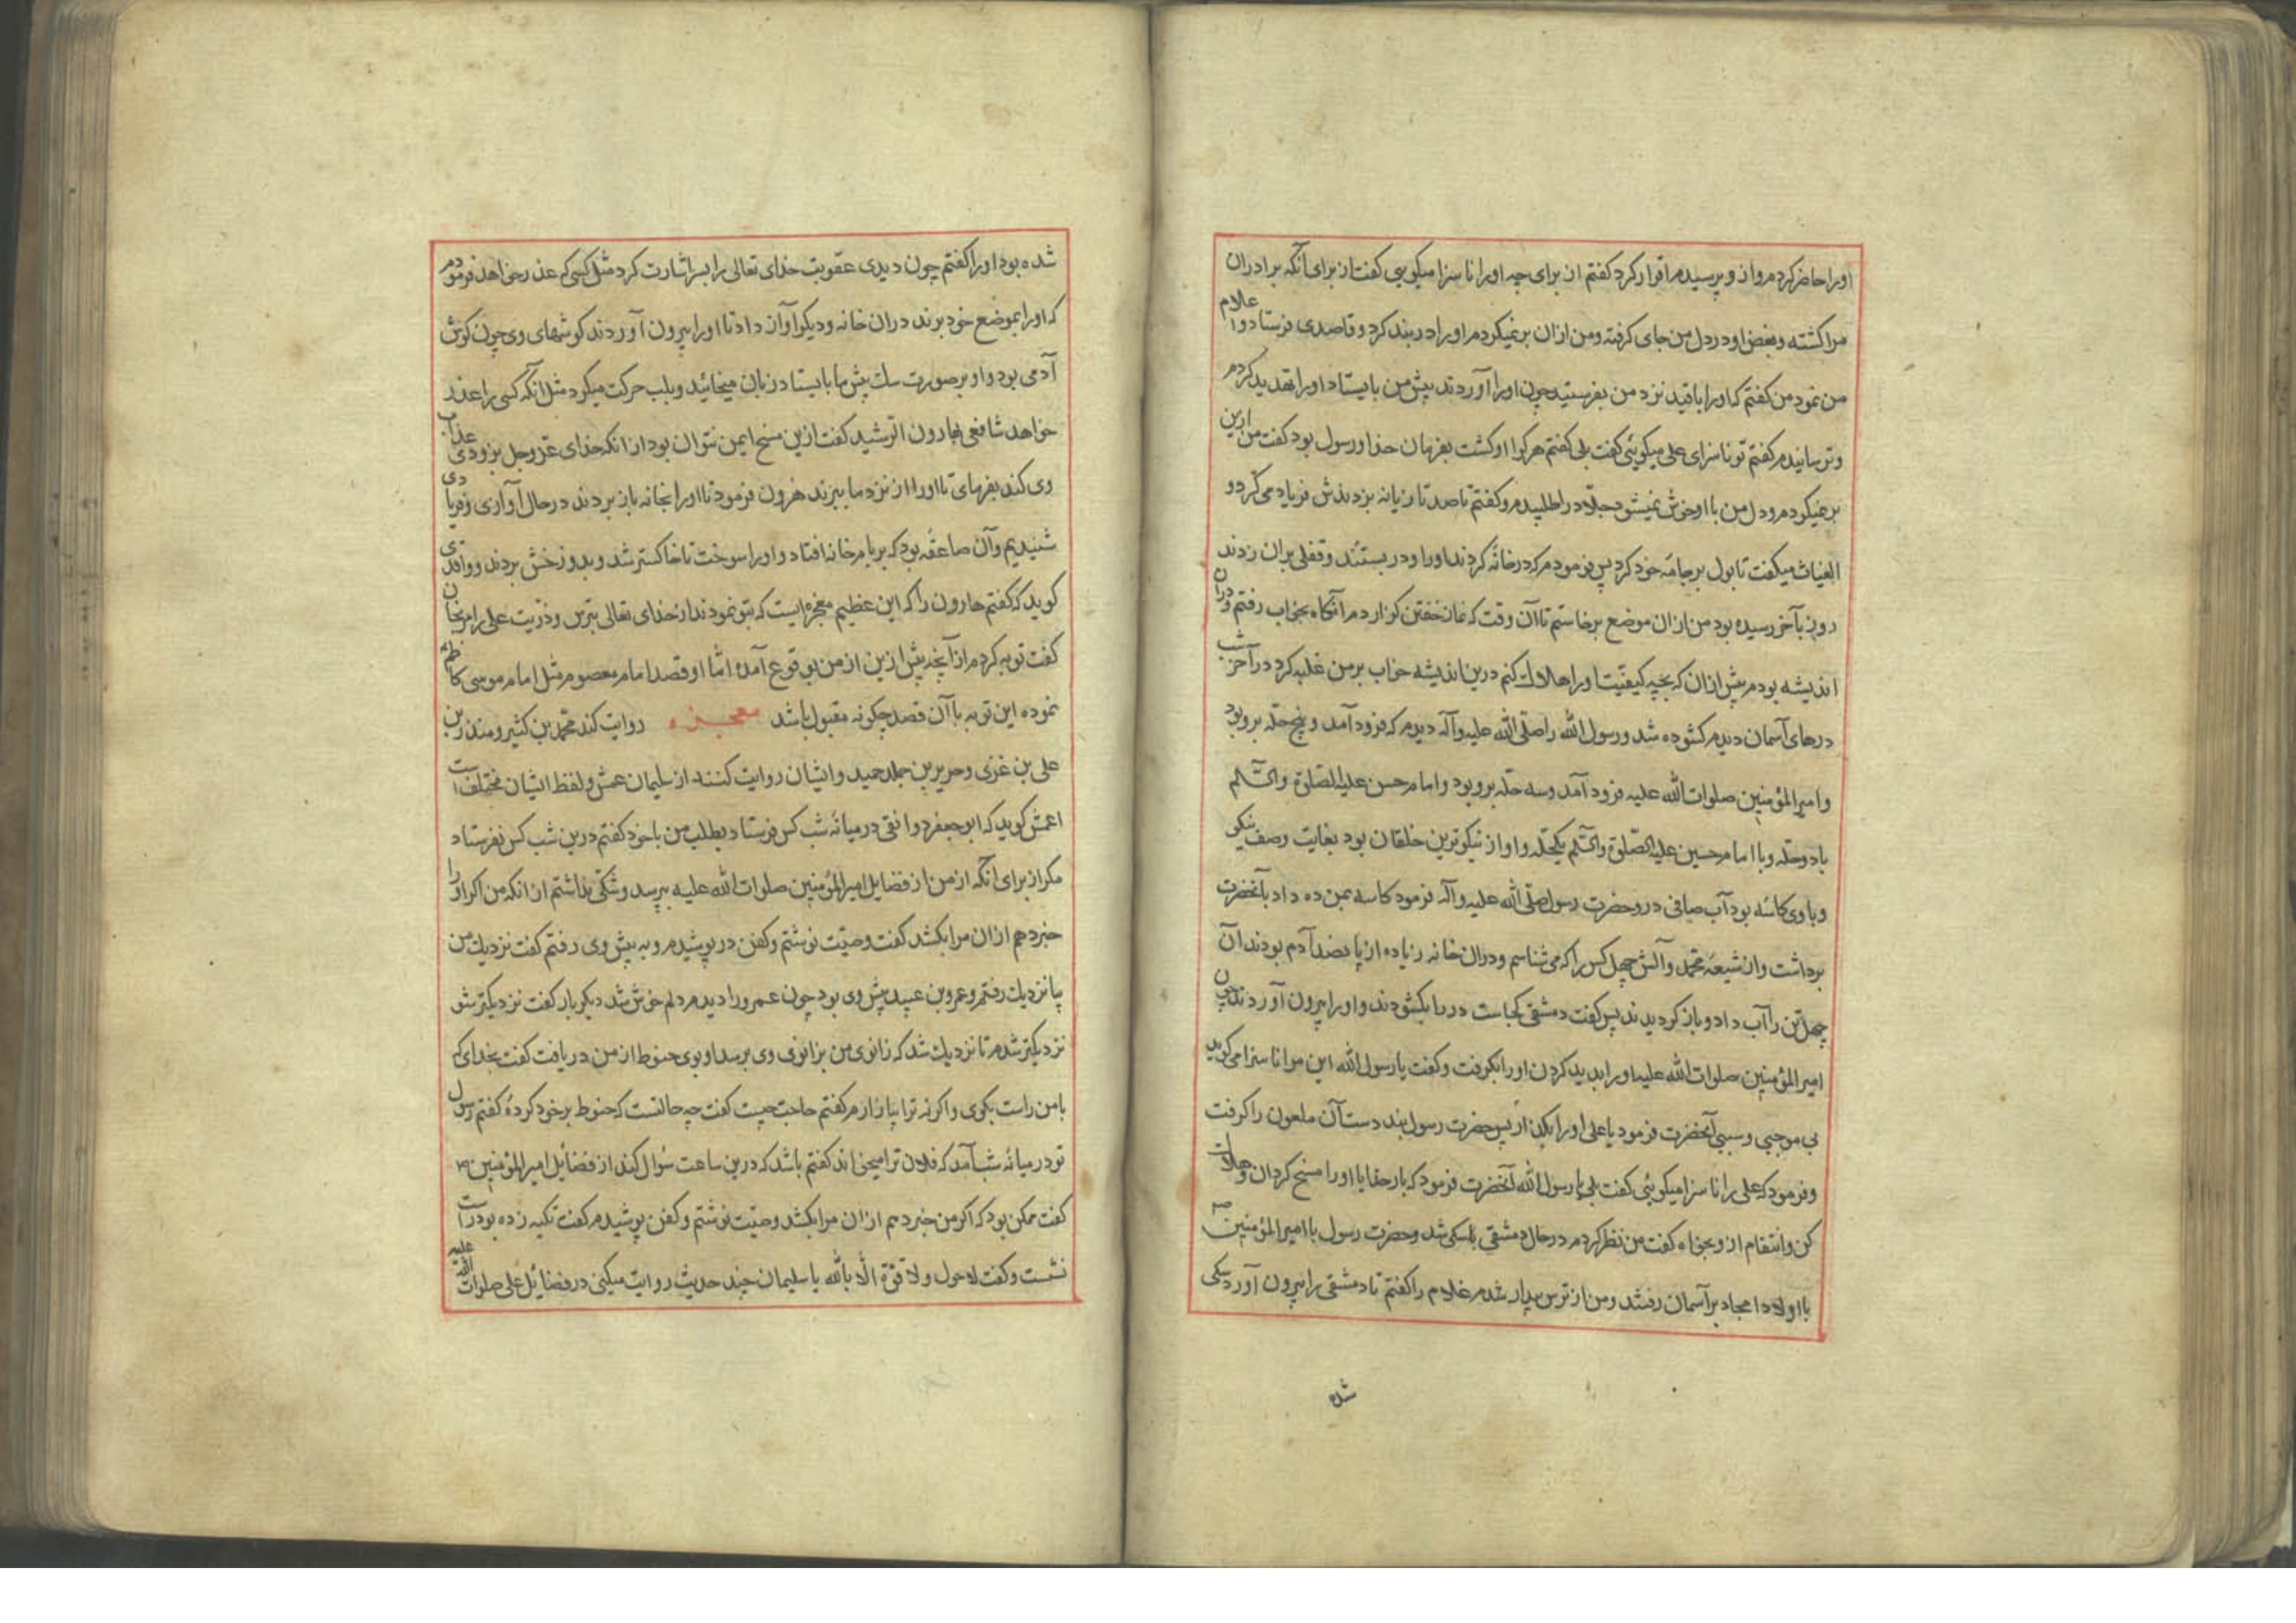 اورا حاضر کردم و از و پرسیدم اقرار کرد کفتم از برای چه اورا ناسزا میکویی کفت از برای آنکه برادران
مرا کشته و بغض او در دل من جای کرفته و من از ان برنمیکردم اورا در بند کرد و قاصدی فرستاد و اعلام
من نمود من کفتم که اورا با قید نزد من بفرستید چون اورا آوردند پیش من بایستاد اورا تهدید کردم
و ترسانیدم کفتم تو ناسزای علی میکوئی کفت بلی کفتم هر کرا او کشت بفرمان خدا و رسول بود کفت من ازین
برنمیکردم و دل من با او خوش نمیشود جلاد را طلبیدم و کفتم تا صد تازیانه بزدندش فریاد می کرد و
الغیاث میکفت تا بول بر جامه خود کرد پس فرمودم که در خانه کردند اورا و در بستند و قفلی بران زدند
روز بآخر رسیده بود من از ان موضع برخاستم تا آن وقت که نماز خفتن کزاردم آنکاه بخواب رفتم و دران
اندیشه بودم پیش از ان که بچه کیفیت اورا هلاک کنم درین اندیشه خواب بر من غلبه کرد در آخر شب
درهای آسمان دیدم کشوده شد و رسول الله را صلّی الله علیه وآله دیدم که فرود آمد و پنج حلّه برو بود
و امیر المؤمنین صلوات الله علیه فرود آمد و سه حلّه برو بود و امام حسن علیه الصّلوة والسّلم
با دو حلّه و با امام حسین علیه الصّلوة والسّلم یکحلّه و او از نیکوترین خلقان بود بغایت وصف نیکی
و با وی کاسه بود آب صافی درو حضرت رسول صلّی الله علیه وآله فرمود کاسه بمن ده داد بآنحضرت
برداشت و از شیعه محمّد و آلش چهل کس را که می شناسم و دران خانه زیاده از پانصد آدم بودند آن
چهل تن را آب داد و باز کردیدند پس کفت دمشقی کجاست در را بکشودند و اورا بیرون آوردند چون
امیر المؤمنین صلوات الله علیه اورا بدید کردن اورا بکرفت و کفت یا رسول الله این مرا ناسزا می کوید
بی موجبی و سببی آنحضرت فرمود یا علی اورا بکن از پس حضرت رسول بند دست آن ملعون را کرفت
و فرمود که علی را ناسزا میکوئی کفت بلی یا رسول الله آنحضرت فرمود که بار خدایا اورا مسخ کردان و هلاک
کن و انتقام از و بخواه کفت من نظر کردم در حال دمشقی بسکی شد و حضرت رسول با امیر المؤمنین
با اولاد امجاد بر آسمان رفتند و من از ترس بیدار شدم غلام را کفتم تا دمشقی را بیرون آورد سکی
شده
شده بود اورا کفتم چون دیدی عقوبت خدای تعالی را بسر اشارت کرد مثل کسی که عذر خواهد فرمودم
که اورا بموضع خود برند دران خانه و دیکر آواز داد تا اورا بیرون آوردند کوشهای وی چون کوش
آدمی بود و او بر صورت سک پیش ما بایستاد زبان میخائید و بلب حرکت میکرد مثل آنکه کسی را عذر
خواهد شافعی بهارون الرّشید کفت ازین مسخ ایمن نتوان بود از انکه خدای عزّ وجل بزودی عذاب
وی کند بفرمای تا اورا از نزد ما ببرند هرون فرمود تا اورا بخانه باز بردند در حال آوازی و فریادی
شنیدیم و آن صاعقه بود که بر بام خانه افتاد و اورا سوخت تا خاکستر شد و بدوزخش بردند و واقدی
کوید که کفتم هارون را که این عظیم معجزه ایست که بتو نمودند از خدای تعالی بترس و ذرّیت علی را مرنجان
کفت توبه کردم از آنچه پیش ازین از من بوقوع آمده امّا او قصد امام معصوم مثل امام موسی کاظم
نموده این توبه با آن قصد چکونه مقبول باشد معجزه روایت کند محمّد بن کثیر و منذر بن
علی بن غزی و حریر بن جملد حمید و ایشان روایت کنند از سلیمان عمش و لفظ ایشان مختلف است
اعمش کوید که ابو جعفر دوانقی در میانه شب کس فرستاد بطلب من با خود کفتم درین شب کس نفرستاد
مکر از برای آنکه از من از فضایل امیر المؤمنین صلوات الله علیه بپرسد و شکّی نداشتم از انکه من اکر اورا
خبر دهم ازان مرا بکشد کفت وصیّت نوشتم و کفن در پوشیدم و به پیش وی رفتم کفت نزدیک من
بیا نزدیک رفتم و عمرو بن عبید پیش وی بود چون عمرو را دیدم دلم خوش شد دیکر بار کفت نزدیکتر شو
نزدیکتر شدم تا نزدیک شد که زانوی من بزانوی وی برسد او بوی حنوط از من دریافت کفت بخدای که
با من راست بکوی و اکر نه ترا بیازارم کفتم حاجت چیست کفت چه حالتست که حنوط بر خود کردۀ کفتم رسول
تو در میانه شب آمد که فلان ترا میخواند کفتم باشد که درین ساعت سؤال کند از فضایل امیر المؤمنین
کفت ممکن بود که اکر من خبر دهم ازان مرا بکشد وصیّت نوشتم و کفن پوشیدم کفت تکیه زده بود راست
نشست و کفت لا حول ولا قوّة الّا بالله یا سلیمان چند حدیث روایت میکنی در فضایل علی صلوات الله علیه